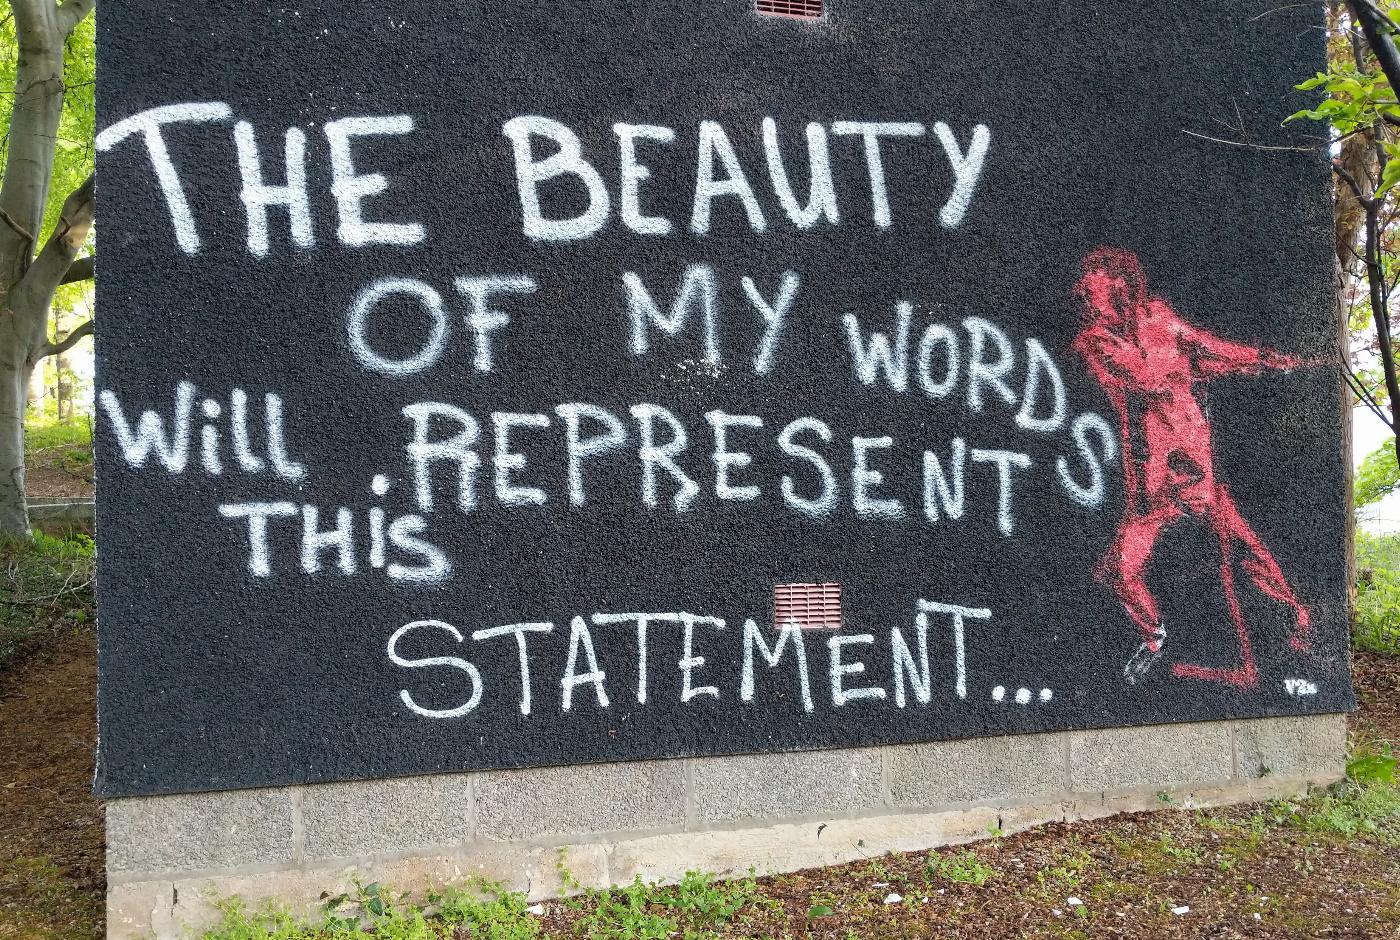 THE BEAUTY
OF MY WORDS
Will REPRESENT
THiS
STATEMENT...
V2k